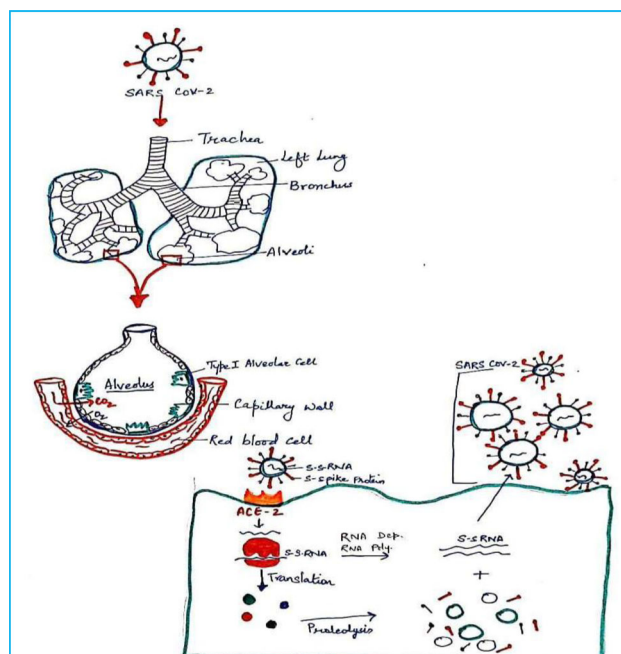 SARS COV-2
Trachea
Left Lung
Bronchus
Alveoli
Type I Alveolar Cell
Alveolus
CO₂
O₂
Capillary Wall
Red blood cell
SARS COV-2
S-S RNA
S-spike Protein
ACE-2
S-S RNA
RNA Dep.
RNA Poly.
S-S RNA
+
Translation
Proteolysis